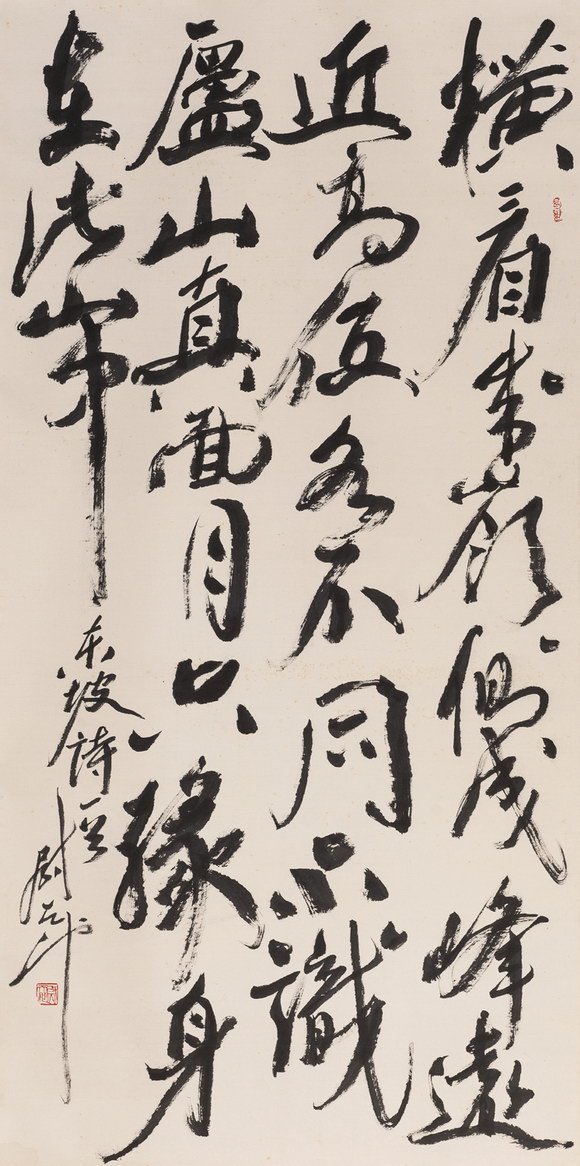 橫看成嶺側成峰遠
近高低各不同不識
廬山真面目只緣身
在此山中
東坡詩 尉天池